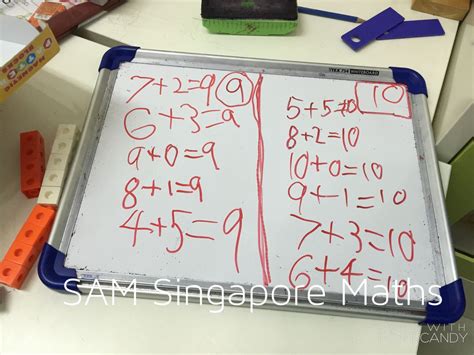 7+2=9 9
6+3=9
9+0=9
8+1=9
4+5=9
10
5+5=10
8+2=10
10+0=10
9+1=10
7+3=10
6+4=10
SAM Singapore Maths
WITH
CANDY